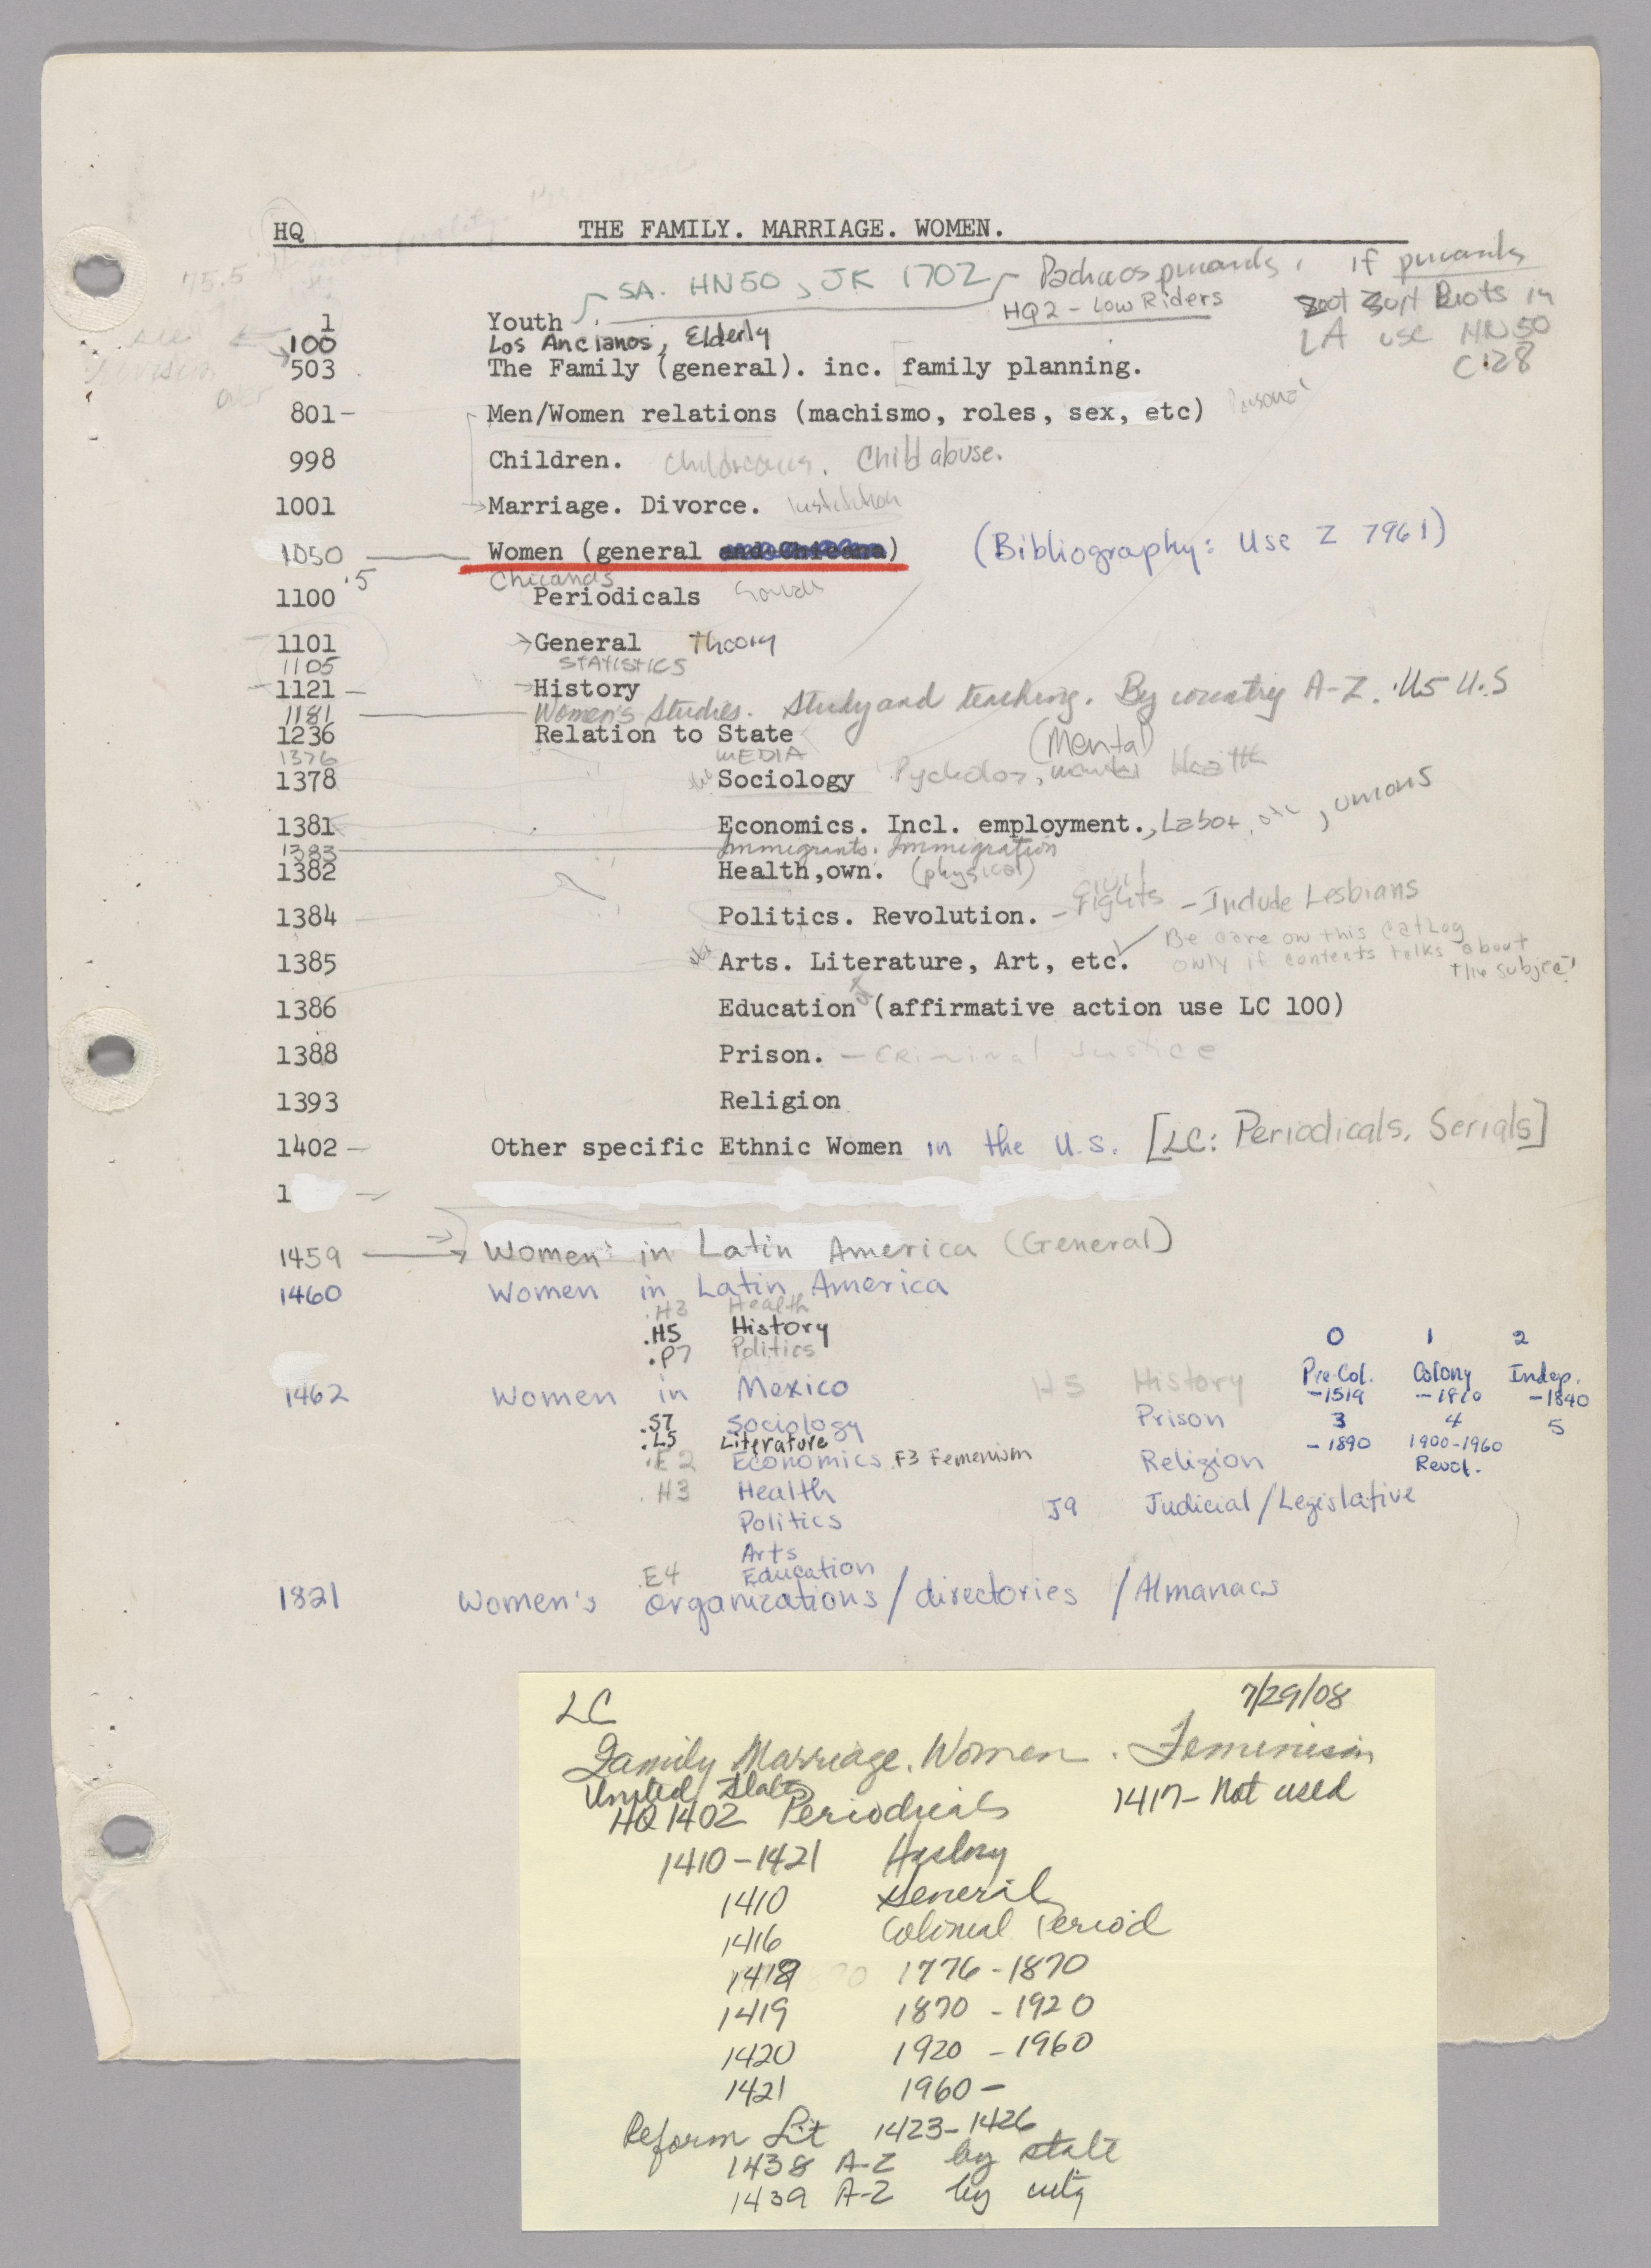 HQ THE FAMILY. MARRIAGE. WOMEN.
75.5
SA. HN50, JK 1702 Pachucos pincards, if pincards
HQ2 - Low Riders
Zoot Riots in
LA use HN50
C.28
1 Youth
100 Los Ancianos, Elderly
see revision over
503 The Family (general). inc. [family planning.
801- Men/Women relations (machismo, roles, sex, etc) Personal
998 Children. Child abuse.
1001 Marriage. Divorce. Institution
1050 Women (general and Chicana) (Bibliography: Use Z 7961)
Chicanas
1100 .5 Periodicals
1101 General Theory
1105 STATISTICS
1121 - History
1181 Women's Studies. Study and teaching. By country A-Z. .U5 U.S
1236 Relation to State
1376 MEDIA (Mental)
1378 Sociology Health
1381 Economics. Incl. employment., Labor, etc, unions
1383 Immigrants. Immigration
1382 Health,own. (physical)
1384 Politics. Revolution. - Civil Rights - Include Lesbians
1385 Arts. Literature, Art, etc. Be care on this catlog
only if contents talks about
the subject
1386 Education (affirmative action use LC 100)
1388 Prison. - Criminal Justice
1393 Religion
1402 - Other specific Ethnic Women in the U.S. [LC: Periodicals, Serials]
1
1459 Women in Latin America (General)
1460 Women in Latin America
.H3 Health
.H5 History
.P7 Politics
0 1 2
Pre-Col. Colony Indep.
-1519 -1810 -1840
3 4 5
-1890 1900-1960
Revol.
1462 Women in Mexico H5 History
.S7 Sociology Prison
.L5 Literature
.E2 Economics .F3 Femenism Religion
.H3 Health J9 Judicial/Legislative
Politics
Arts
.E4 Education
1821 Women's organizations/directories /Almanacs
LC 7/29/08
Family Marriage. Women. Feminism
United States 1417- Not used
HQ 1402 Periodicals
1410-1421 History
1410 General
1416 Colonial Period
1418 1776-1870
1419 1870-1920
1420 1920-1960
1421 1960-
Reform Lit 1423-1426
1438 A-Z by state
1439 A-Z by city